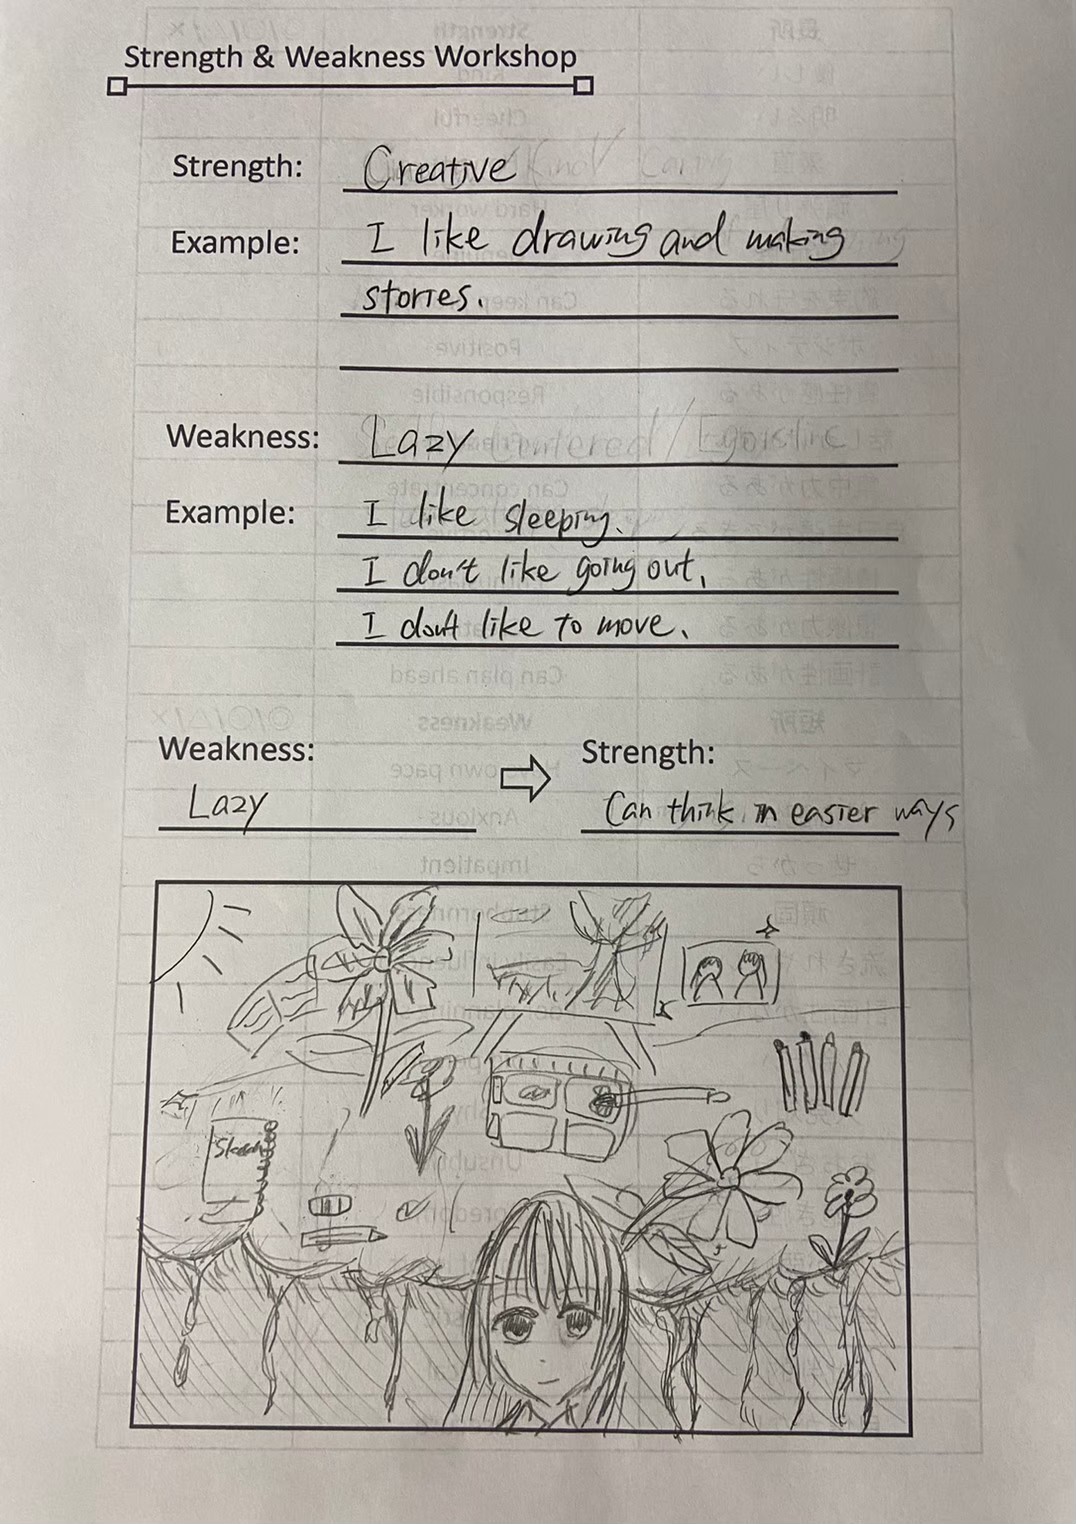 Strength & Weakness Workshop
Strength: Creative
Example: I like drawing and making
stories.
Weakness: Lazy
Example: I like sleeping.
I don't like going out.
I don't like to move.
Weakness:
Strength:
Lazy
Can think in easier ways
Sketch